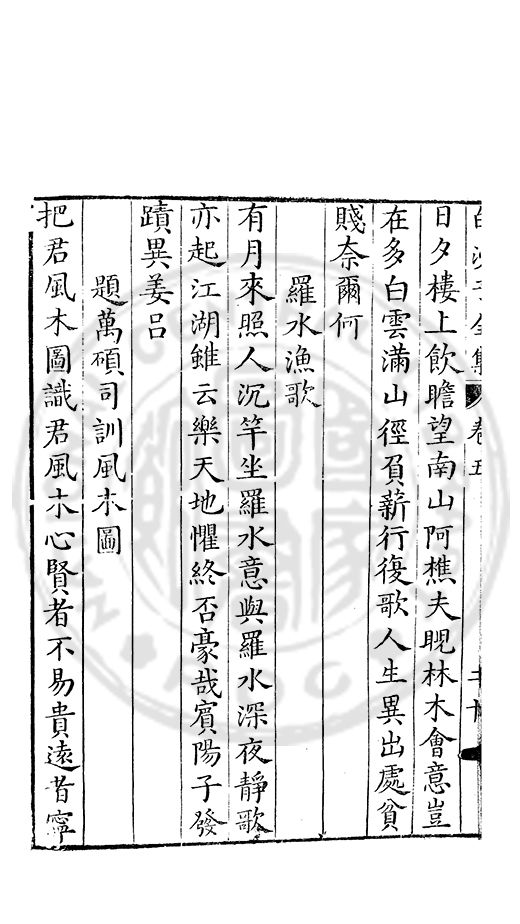 白沙子全集 卷五
日夕樓上飲瞻望南山阿樵夫睨林木會意豈
在多白雲滿山徑負薪行復歌人生異出處貧
賤奈爾何
羅水漁歌
有月來照人沉竿坐羅水意與羅水深夜靜歌
亦起江湖雖云樂天地懼終否豪哉賓陽子發
蹟異姜呂
題萬碩司訓風木圖
把君風木圖識君風木心賢者不易貴遠者寧